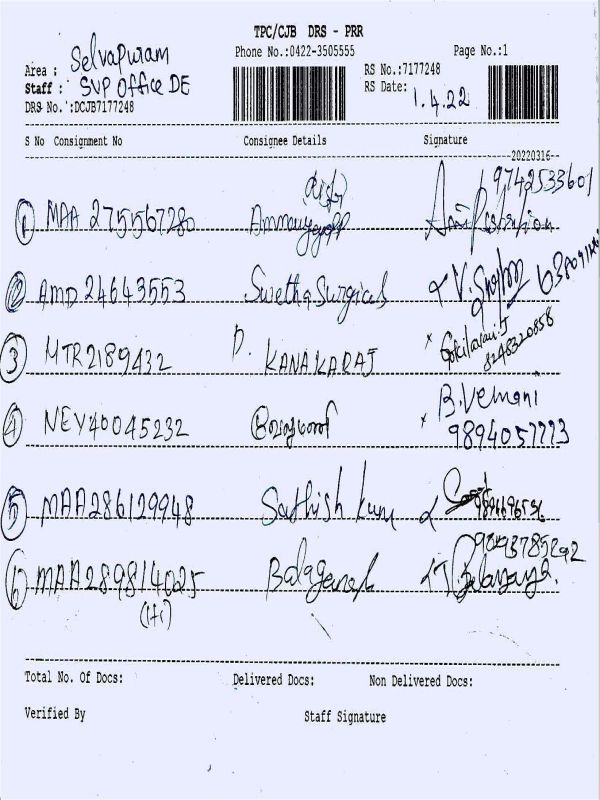 TPC/CJB DRS - PRR
Phone No.:0422-3505555 Page No.:1
Area : Selvapuram
Staff : SVP Office DE
RS No.:7177248
RS Date: 1.4.22
DRS No.:DCJB7177248
S No Consignment No Consignee Details Signature
20220316
9742533601
1 MAA 275567280
2 AMD 24643553 Swetha Surgicals
3 MTR2189432 D. KANAKARAJ
8248320858
4 NEY40045232 B.Vemani
9894057773
5 MAA286129948 Sathish Kum
6 MAA289814025 Balaganesh
(Hi)
Total No. Of Docs: Delivered Docs: Non Delivered Docs:
Verified By Staff Signature